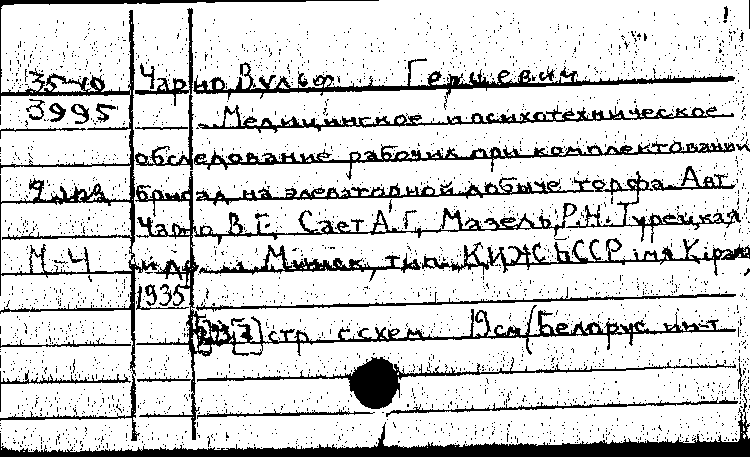 35-40 Чарно, Вульф Герцевич
3995 Медицинское и психотехническое
обследование рабочих при комплектовании
2 экз бригад на элеваторной добыче торфа. Авт
Чарно, В.Г, Сает А.Г, Мазель, Р.Н. Турецкая
М-4 и др. Минск, тип. КИЖ БССР імя Кірава
1935
стр с схем 19 см (Белорус. ин-т